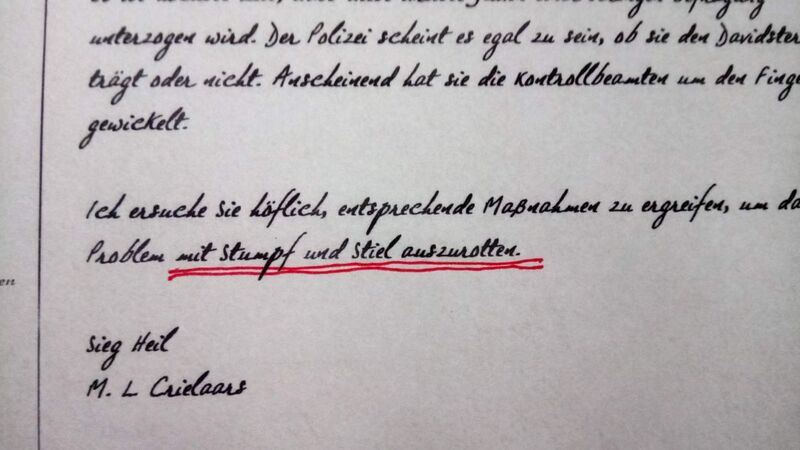 unterzogen wird. Der Polizei scheint es egal zu sein, ob sie den Davidster
trägt oder nicht. Anscheinend hat sie die Kontrollbeamten um den Finge
gewickelt.
Ich ersuche Sie höflich, entsprechende Maßnahmen zu ergreifen, um da
Problem mit Stumpf und Stiel auszurotten.
en
Sieg Heil
M. L Crielaars